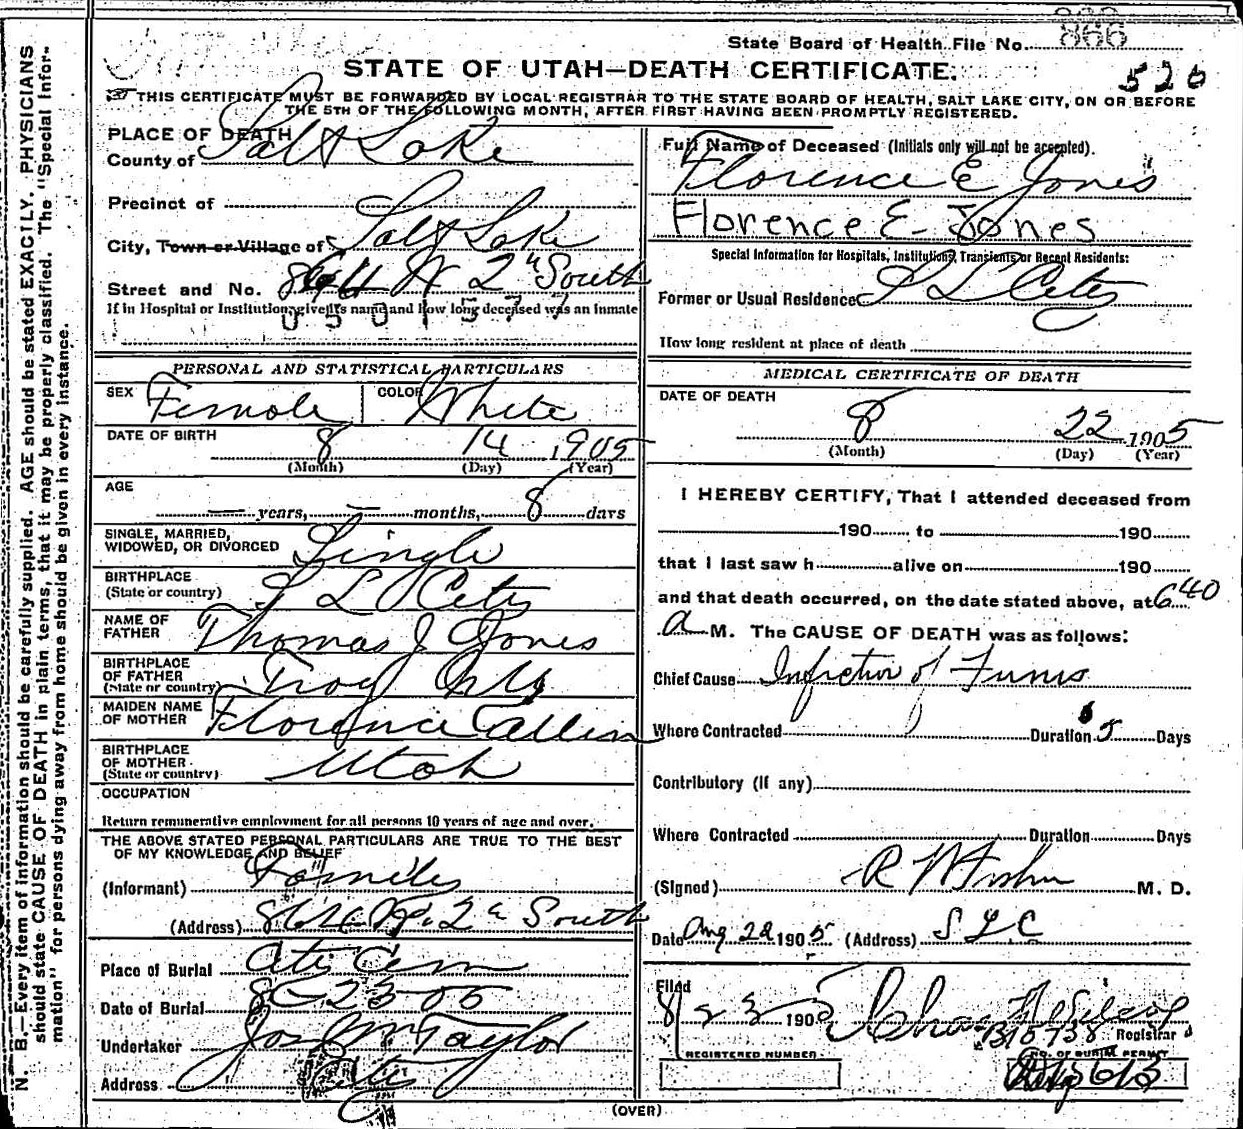 State Board of Health File No. 866
STATE OF UTAH—DEATH CERTIFICATE.
526
THIS CERTIFICATE MUST BE FORWARDED BY LOCAL REGISTRAR TO THE STATE BOARD OF HEALTH, SALT LAKE CITY, ON OR BEFORE
THE 5TH OF THE FOLLOWING MONTH, AFTER FIRST HAVING BEEN PROMPTLY REGISTERED.
N. B.—Every item of information should be carefully supplied. AGE should be stated EXACTLY. PHYSICIANS
should state CAUSE OF DEATH in plain terms, that it may be properly classified. The "Special Infor-
mation" for persons dying away from home should be given in every instance.
PLACE OF DEATH
County of Salt Lake
Precinct of
City, Town or Village of Salt Lake
Street and No. 864 W 2" South
If in Hospital or Institution, give its name and how long deceased was an inmate
PERSONAL AND STATISTICAL PARTICULARS
SEX Female COLOR White
DATE OF BIRTH 8 14 1905
(Month) (Day) (Year)
AGE
— years, — months, 8 days
SINGLE, MARRIED,
WIDOWED, OR DIVORCED Single
BIRTHPLACE
(State or country) S L City
NAME OF
FATHER Thomas J Jones
BIRTHPLACE
OF FATHER
(State or country) Troy
MAIDEN NAME
OF MOTHER Florence
BIRTHPLACE
OF MOTHER
(State or country) Utah
OCCUPATION
Return remunerative employment for all persons 10 years of age and over.
THE ABOVE STATED PERSONAL PARTICULARS ARE TRUE TO THE BEST
OF MY KNOWLEDGE AND BELIEF
(Informant) Family
(Address) 864 W. 2" South
Place of Burial City Cem
Date of Burial 8-23-05
Undertaker Jos Wm Taylor
Address City
Full Name of Deceased (Initials only will not be accepted).
Florence E Jones
Florence E. Jones
Special Information for Hospitals, Institutions, Transients or Recent Residents:
Former or Usual Residence S L City
How long resident at place of death
MEDICAL CERTIFICATE OF DEATH
DATE OF DEATH
8 22 1905
(Month) (Day) (Year)
I HEREBY CERTIFY, That I attended deceased from
190 to 190
that I last saw h alive on 190
and that death occurred, on the date stated above, at 640
a M. The CAUSE OF DEATH was as follows:
Chief Cause Infection of Funis
Where Contracted Duration 5 Days
Contributory (If any)
Where Contracted Duration Days
(Signed) R W Fisher M. D.
Date Aug 22 1905 (Address) S L C
Filed
8/23 1905
Registrar
REGISTERED NUMBER
NO. OF BURIAL PERMIT
(OVER)